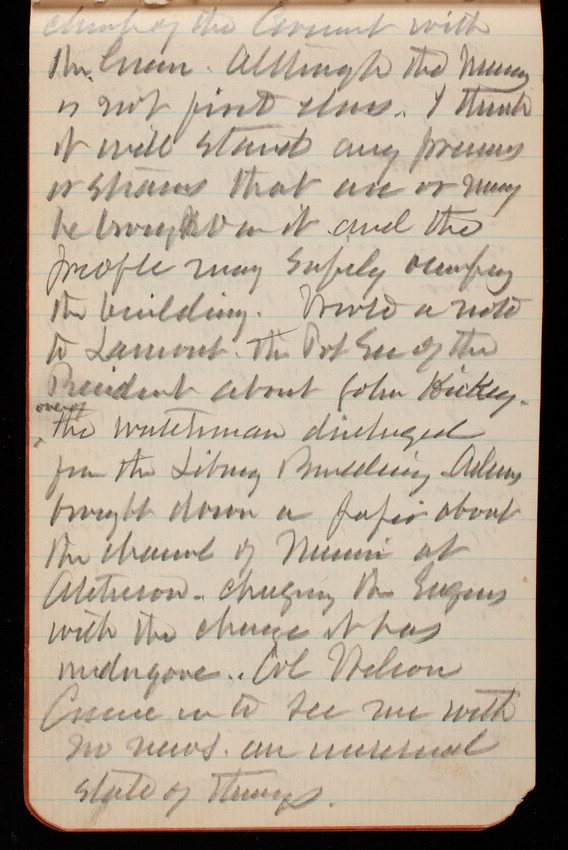 of the Cement with
the Crown. Although the Money
is not first class. I think
it will stand any pressures
or strains that are or may
be brought on it and the
people may safely occupy
the building. Wrote a note
to Lamont. the Pvt Sec of the
President about John Hickey.
one of
the watchman discharged
from the Library Building. Adams
brought down a paper about
the channel of Missouri at
Atchison. charging the Engrs
with the change it has
undergone.. Col Wilson
Came in to see me with
no news. an unusual
state of things.